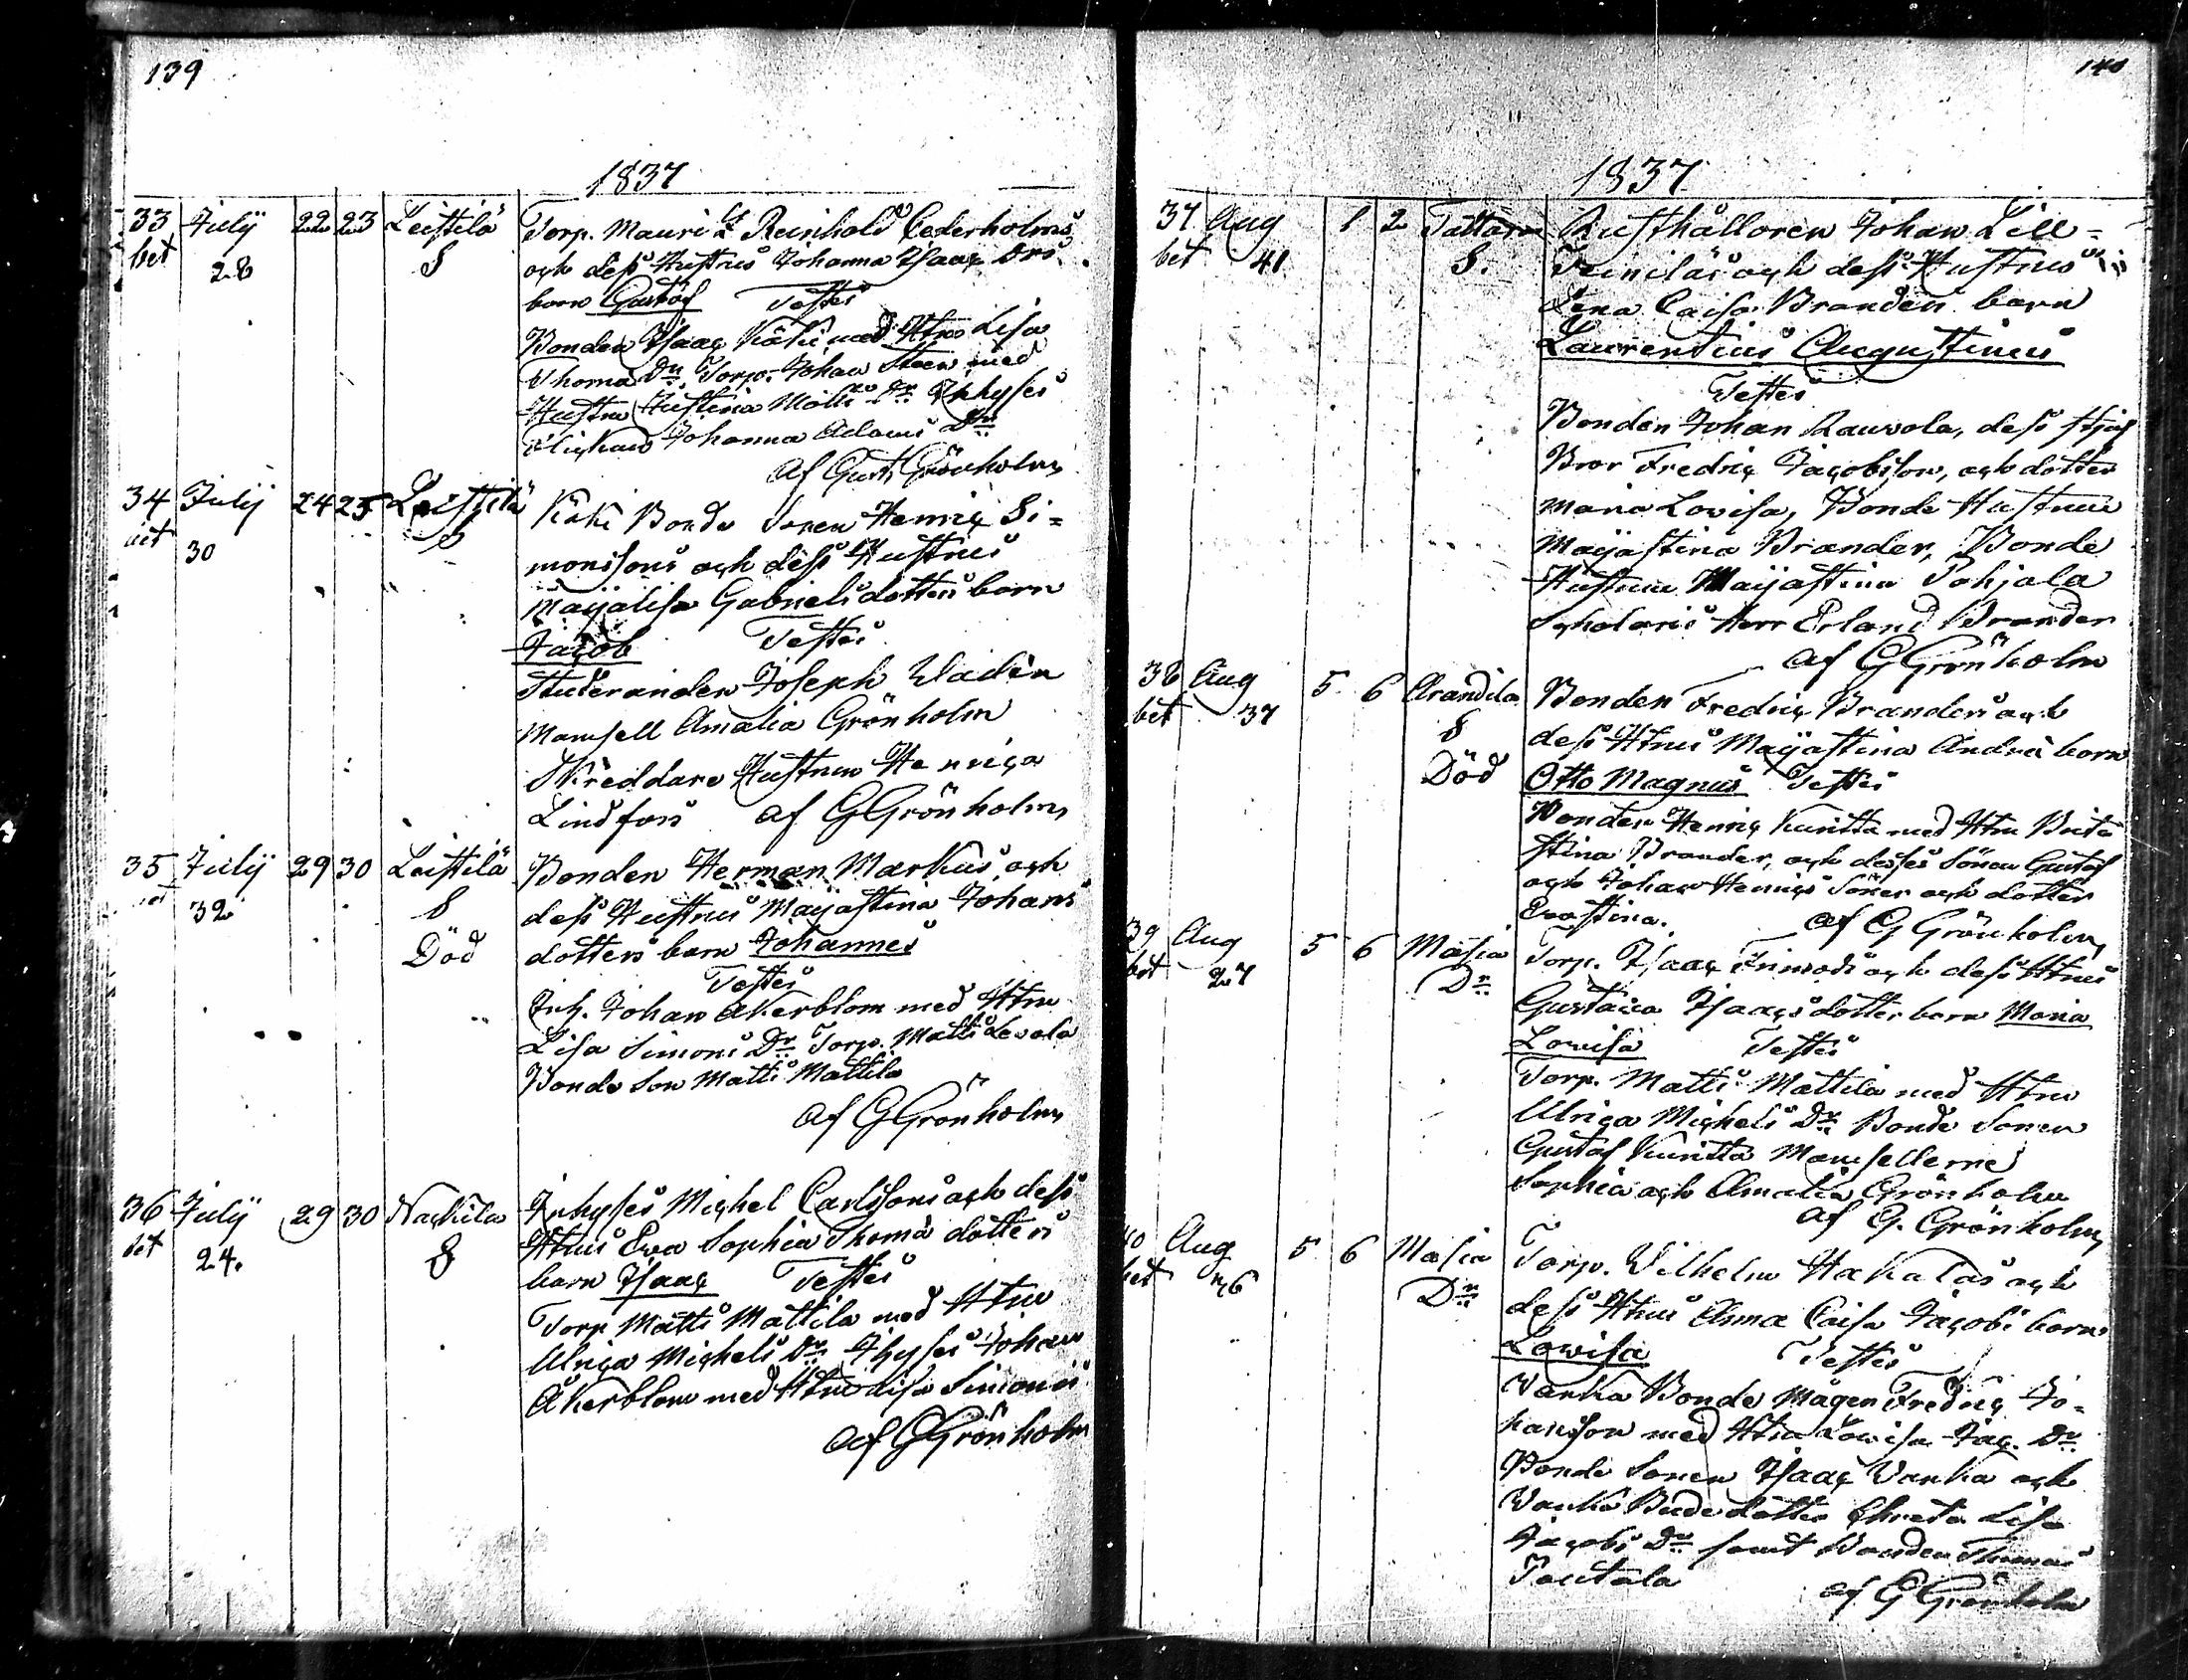 139
1837
33 July 22 23 Leistilä Torp. Mauri L Reinhold Cederholms
bet 28 S och dess Hustrus Johanna Isaacs Drs
barn Gustaf Testes
Bonden Isaac Käki med Htru Lisa
Thomæ Dr. Torp. Johan Steen med
Hustru Justina Matts Dr Inhyses
Flickan Johanna Adams Dr
af Gust. Grönholm
34 July 24 25 Leistilä Käki Bonde Sonen Henric Si=
30 S monssons och dess Hustrus
Maijalisa Gabrielsdotters barn
Jacob Testes
Studeranden Joseph Wadén
Mamsell Amalia Grönholm
Skreddare Hustrun Henrica
Lindfors af G Grönholm
35 July 29 30 Leistilä Bonden Herman Markus och
32 S dess Hustrus Maijastina Johans
Död dotters barn Johannes
Testes
Inh. Johan Åkerblom med Htru
Lisa Simons Dr Torp. Matts Levola
Bonde Son Matts Mattila
af G Grönholm
36 July 29 30 Nackila Inhyses Michel Carlssons och dess
bet 24. S Htrus Eva Sophia Thomæ dotters
barn Isaac Testes
Torp Matts Mattila med Htru
Ulrica Michels Dr Ihyses Johan
Åkerblom med Htru Lisa Simons
af G Grönholm
140
1837
37 Aug 1 2 Tattara Rusthållaren Johan Lill=
bet 41 S. Seinilas och dess Hustrus
Lena Caisa Branders barn
Laurentius Augustinus
Testes
Bonden Johan Rauvola, dess Stjuf
Bror Fredric Jacobsson, och dotter
Maria Lovisa, Bonde Hustrun
Maijastina Brander, Bonde
Hustrun Maijastina Pohjala
Scholaris Herr Erland Brander
af G Grönholm
38 Aug 5 6 Arandila Bonden Fredric Branders och
bet 37 S dess Htrus Maijastina Andræ barn
Död Otto Magnus Testes
Bonden Henric Kuritta med Htru Brita
Stina Brander, och desses Söner Gustaf
och Johan Henrics Söner och dotter
Evastina. af G Grönholm
39 Aug 5 6 Masia Torp. Isaac Frimods och dess Htrus
bet 27 Dr Gustava Isaacs dotter barn Maria
Lovisa Testes
Torp. Matts Mattila med Htru
Ulrica Michels Dr Bonde Sonen
Gustaf Kuritta Mamsellerne
Sophia och Amalia Grönholm
af G. Grönholm
40 Aug 5 6 Masia Torp. Wilhelm Hakalas och
bet 26 Dr dess Htrus Anna Caisa Jacobs barn
Lovisa Testes
Vanka Bonde Mågen Fredric Jo=
hansson med Htru Lovisa Jac. Dr
Bonde Sonen Isaac Vanka och
Vanka Bonde dotter Greta Lisa
Jacobs Dr samt Bonden Thomas
Toutala af G Grönholm